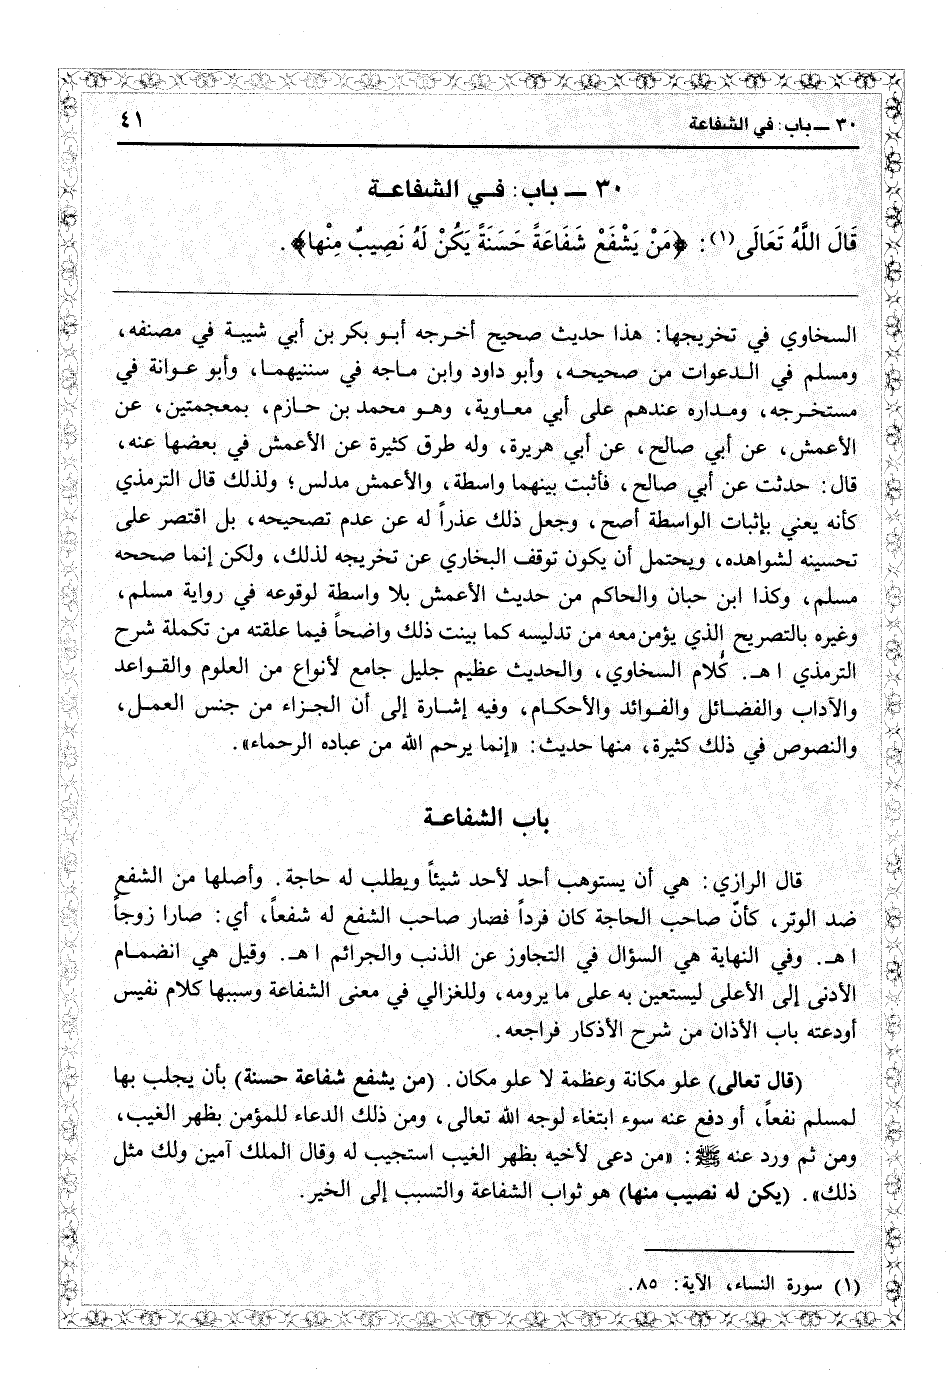 ٣٠ ــ باب: في الشفاعة
٤١
٣٠ ــ باب: في الشفاعة
قَالَ اللَّهُ تَعَالَى(١): ﴿مَنْ يَشْفَعْ شَفَاعَةً حَسَنَةً يَكُنْ لَهُ نَصِيبٌ مِنْها﴾.
السخاوي في تخريجها: هذا حديث صحيح أخرجه أبو بكر بن أبي شيبة في مصنفه،
ومسلم في الدعوات من صحيحه، وأبو داود وابن ماجه في سننيهما، وأبو عوانة في
مستخرجه، ومداره عندهم على أبي معاوية، وهو محمد بن حازم، بمعجمتين، عن
الأعمش، عن أبي صالح، عن أبي هريرة، وله طرق كثيرة عن الأعمش في بعضها عنه،
قال: حدثت عن أبي صالح، فأثبت بينهما واسطة، والأعمش مدلس؛ ولذلك قال الترمذي
كأنه يعني بإثبات الواسطة أصح، وجعل ذلك عذراً له عن عدم تصحيحه، بل اقتصر على
تحسينه لشواهده، ويحتمل أن يكون توقف البخاري عن تخريجه لذلك، ولكن إنما صححه
مسلم، وكذا ابن حبان والحاكم من حديث الأعمش بلا واسطة لوقوعه في رواية مسلم،
وغيره بالتصريح الذي يؤمن معه من تدليسه كما بينت ذلك واضحاً فيما علقته من تكملة شرح
الترمذي ا هـ. كُلام السخاوي، والحديث عظيم جليل جامع لأنواع من العلوم والقواعد
والآداب والفضائل والفوائد والأحكام، وفيه إشارة إلى أن الجزاء من جنس العمل،
والنصوص في ذلك كثيرة، منها حديث: «إنما يرحم الله من عباده الرحماء».
باب الشفاعة
قال الرازي: هي أن يستوهب أحد لأحد شيئاً ويطلب له حاجة. وأصلها من الشفع
ضد الوتر، كأنّ صاحب الحاجة كان فرداً فصار صاحب الشفع له شفعاً، أي: صارا زوجاً
ا هـ. وفي النهاية هي السؤال في التجاوز عن الذنب والجرائم ا هـ. وقيل هي انضمام
الأدنى إلى الأعلى ليستعين به على ما يرومه، وللغزالي في معنى الشفاعة وسببها كلام نفيس
أودعته باب الأذان من شرح الأذكار فراجعه.
(قال تعالى) علو مكانة وعظمة لا علو مكان. (من يشفع شفاعة حسنة) بأن يجلب بها
لمسلم نفعاً، أو دفع عنه سوء ابتغاء لوجه الله تعالى، ومن ذلك الدعاء للمؤمن بظهر الغيب،
ومن ثم ورد عنه ﷺ: «من دعى لأخيه بظهر الغيب استجيب له وقال الملك آمين ولك مثل
ذلك». (يكن له نصيب منها) هو ثواب الشفاعة والتسبب إلى الخير.
(١) سورة النساء، الآية: ٨٥.